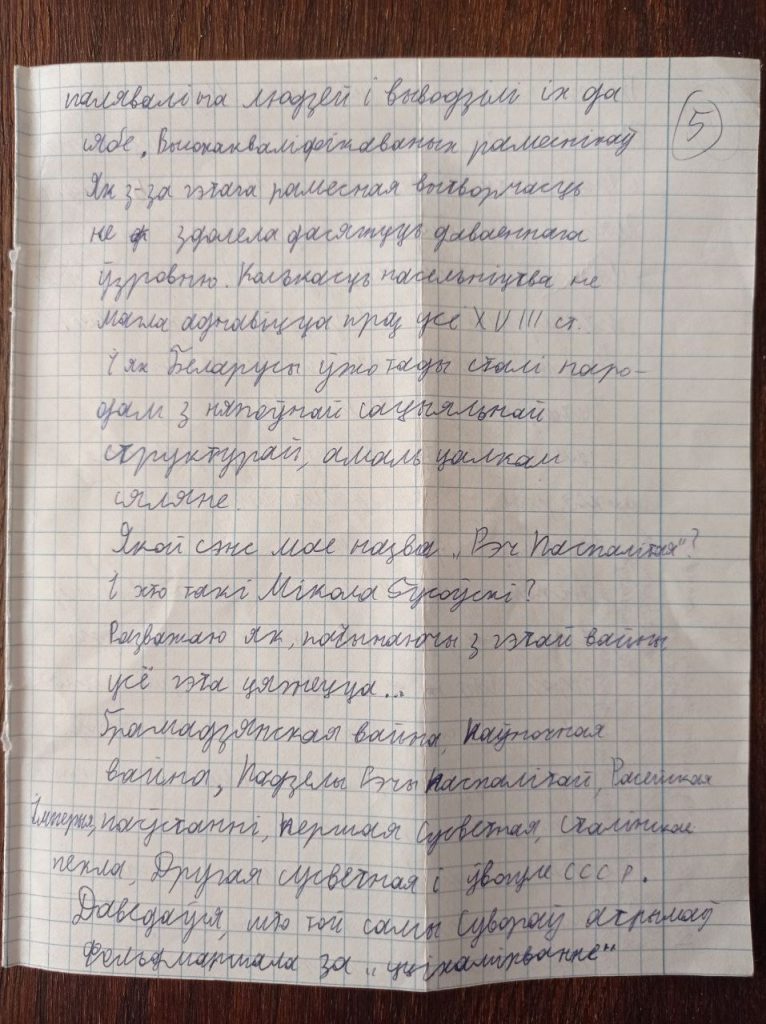 палявалі на людзей і выводзілі іх да
5
сябе, Высокакваліфікаваных рамеснікаў
Як з-за гэтага рамесная вытворчасць
не здолела дасягнуць даваеннага
ўзроўню. Колькасць насельніцтва не
магла аднавіцца праз усё XVIII ст.
І як Беларусы ўжо тады сталі наро-
дам з няпоўнай сацыяльнай
структурай, амаль цалкам
сяляне.
Якой сэнс мае назва „Рэч Паспалітая"?
І хто такі Мікола Гусоўскі?
Разважаю як, пачынаючы з гэтай вайны
усё гэта цягнецца...
Грамадзянская вайна, Паўночная
вайна, Падзелы Рэчы Паспалітай, Расейская
Імперыя, паўстанні, Першая Сусветная, Сталінскае
пекла, Другая сусветная і ўвогуле СССР.
Даведаўся, што той самы Сувораў атрымаў
Фельдмаршала за „ціхамірванне"